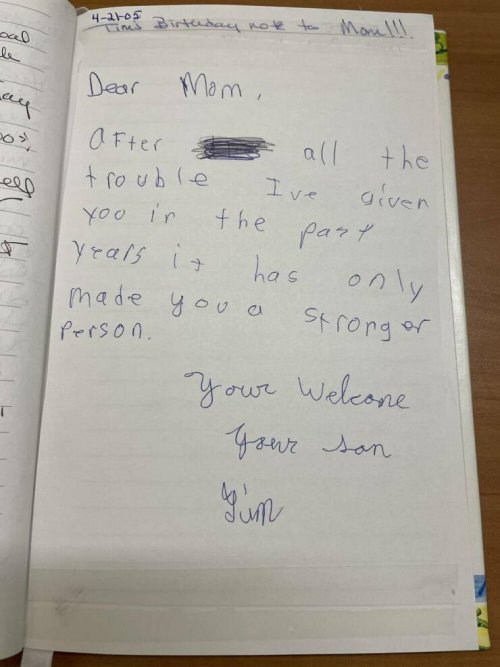 4-21-05
Tims Birthday note to Mom!!!.
Dear Mom,
After all the
trouble Ive given
you in the past
years it has only
made you a stronger
person.
Your Welcome
Your son
Tim